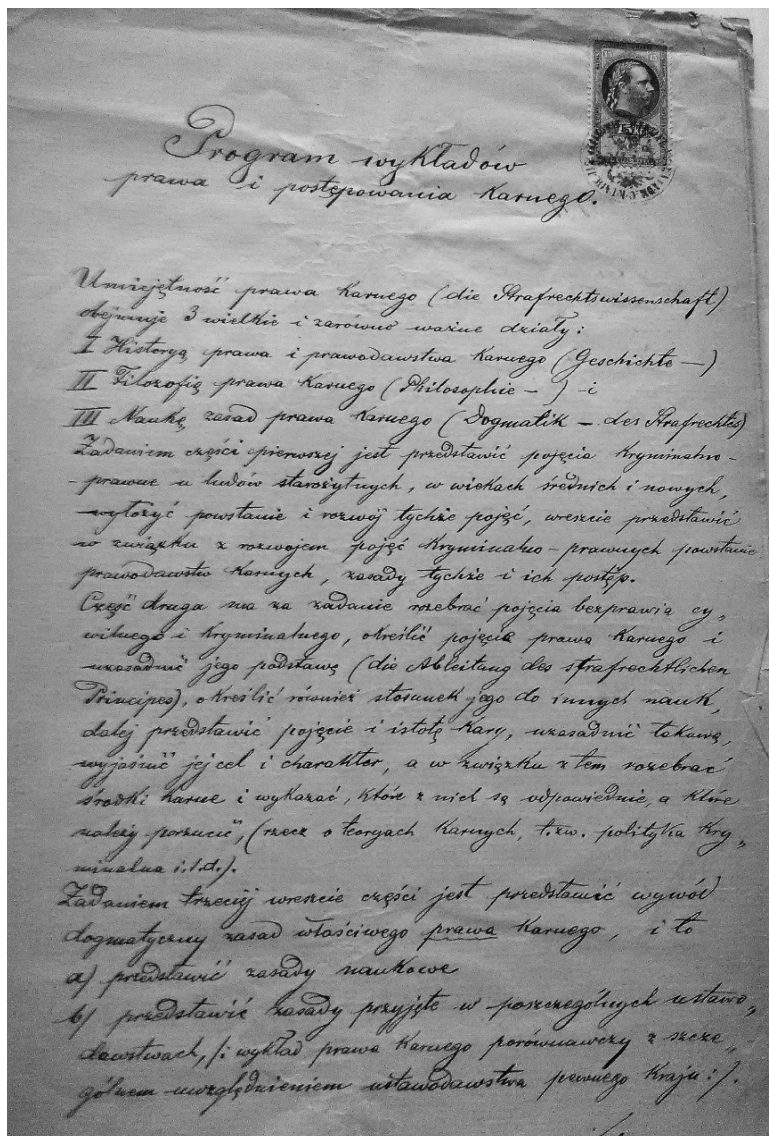 Program wykładów
prawa i postępowania karnego.
Umiejętność prawa karnego (die Strafrechtswissenschaft)
obejmuje 3 wielkie i zarówno ważne działy:
I Historyą prawa i prawodawstwa karnego (Geschichte —)
II Filozofię prawa karnego (Philosophie —) i
III Naukę zasad prawa karnego (Dogmatik — des Strafrechtes)
Zadaniem części pierwszej jest przedstawić pojęcia kryminalno-
-prawne u ludów starożytnych, w wiekach średnich i nowych,
wyłożyć powstanie i rozwój tychże pojęć, wreszcie przedstawić
w związku z rozwojem pojęć kryminalno-prawnych powstanie
prawodawstw karnych, zasady tychże i ich postęp.
Część druga ma za zadanie rozebrać pojęcia bezprawia cy„
wilnego i kryminalnego, określić pojęcia prawa karnego i
uzasadnić jego podstawę (die Ableitung des strafrechtlichen
Principes), określić również stosunek jego do innych nauk,
dalej przedstawić pojęcie i istotę kary, uzasadnić takową,
wyjaśnić jej cel i charakter, a w związku z tem rozebrać
środki karne i wykazać, które z nich są odpowiednie, a które
należy porzucić, (rzecz o teoryach karnych, t.zw. polityka kry„
minalna i.t.d.).
Zadaniem trzeciej wreszcie części jest przedstawić wywód
dogmatyczny zasad właściwego prawa karnego, i to
a) przedstawić zasady naukowe
b) przedstawić zasady przyjęte w poszczególnych ustawo„
dawstwach, /i wykład prawa karnego porównawczy z szcze„
gólnem uwzględnieniem ustawodawstwa pewnego kraju:/.
./.